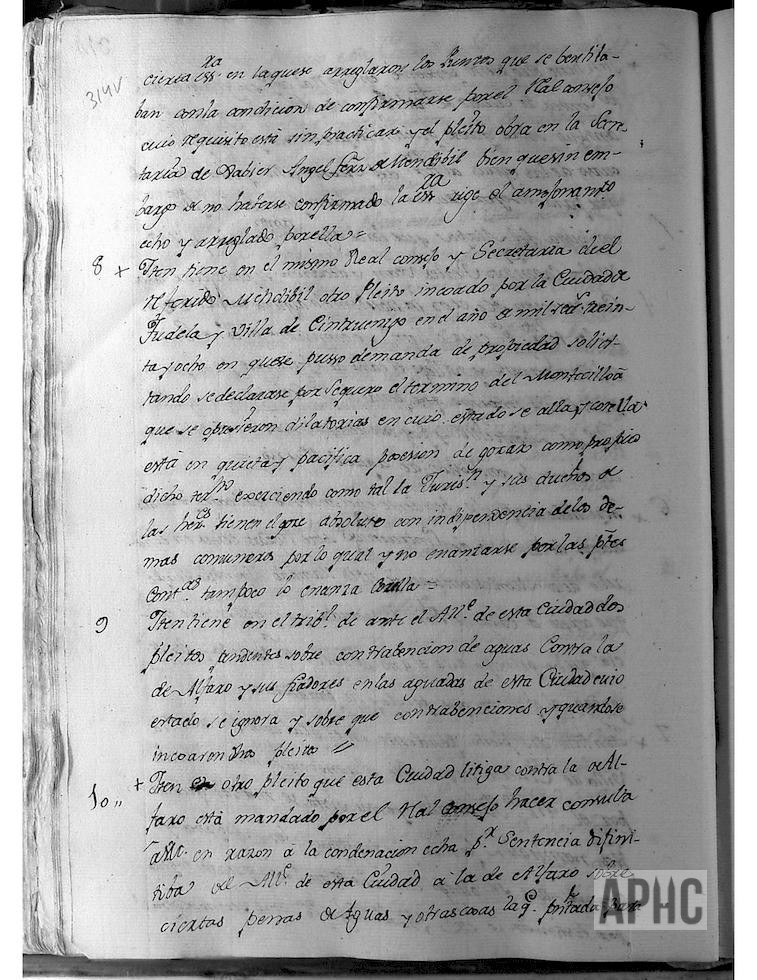 314V
cierta ess.ra en la quese arreglaron los puntos que se bentila-
ban con la condicion de confirmarse por el Rl. consejo
cuio requisito está sin practicar y el pleito obra en la Secre-
taria de Vabier Angel Ferz. de Mendibil bien que sin em-
bargo de no haberse confirmado la ess.ra rige el amojonam.to
echo y arreglado por ella =
8 + Iten tiene en el mismo Real consejo y Secretaria de el
referido Mendibil otro Pleito incoado por la Ciudad de
Tudela y Villa de Cintruenigo en el año de mil sets. trein-
ta y ocho en quese pusso demanda de propiedad solici-
tando se declarase por seguro el termino del Montecillo a
que se opusieron dilatorias en cuio estado se alla y corella
está en quieta y pacifica posesion de gozar como propio
dicho ter.no exerciendo como tal la Jurisn. y sus dueños de
las her.es tienen el goze absoluto con indipendencia de los de-
mas comuneros por lo qual y no enantarse por las ptes
Cont.as tampoco lo enanta Corella =
9 Iten tiene en el tribl. de ante el Alle. de esta Ciudad dos
pleitos pendentes sobre contrabencion de aguas Contra la
de Alfaro y sus fiadores en las aguadas de esta Ciudad cuio
estado se ignora y sobre que contrabenciones y quando se
incoaron dho pleito =
10,, + Iten otro pleito que esta Ciudad litiga contra la de Al-
faro está mandado por el Rl. consejo hacer consulta
a Mt. en razon a la condenacion echa pr. Sentencia difini-
tiba del Alle. de esta Ciudad a la de Alfaro sobre
ciertas penas de Aguas y otras cosas la q.e
APHC